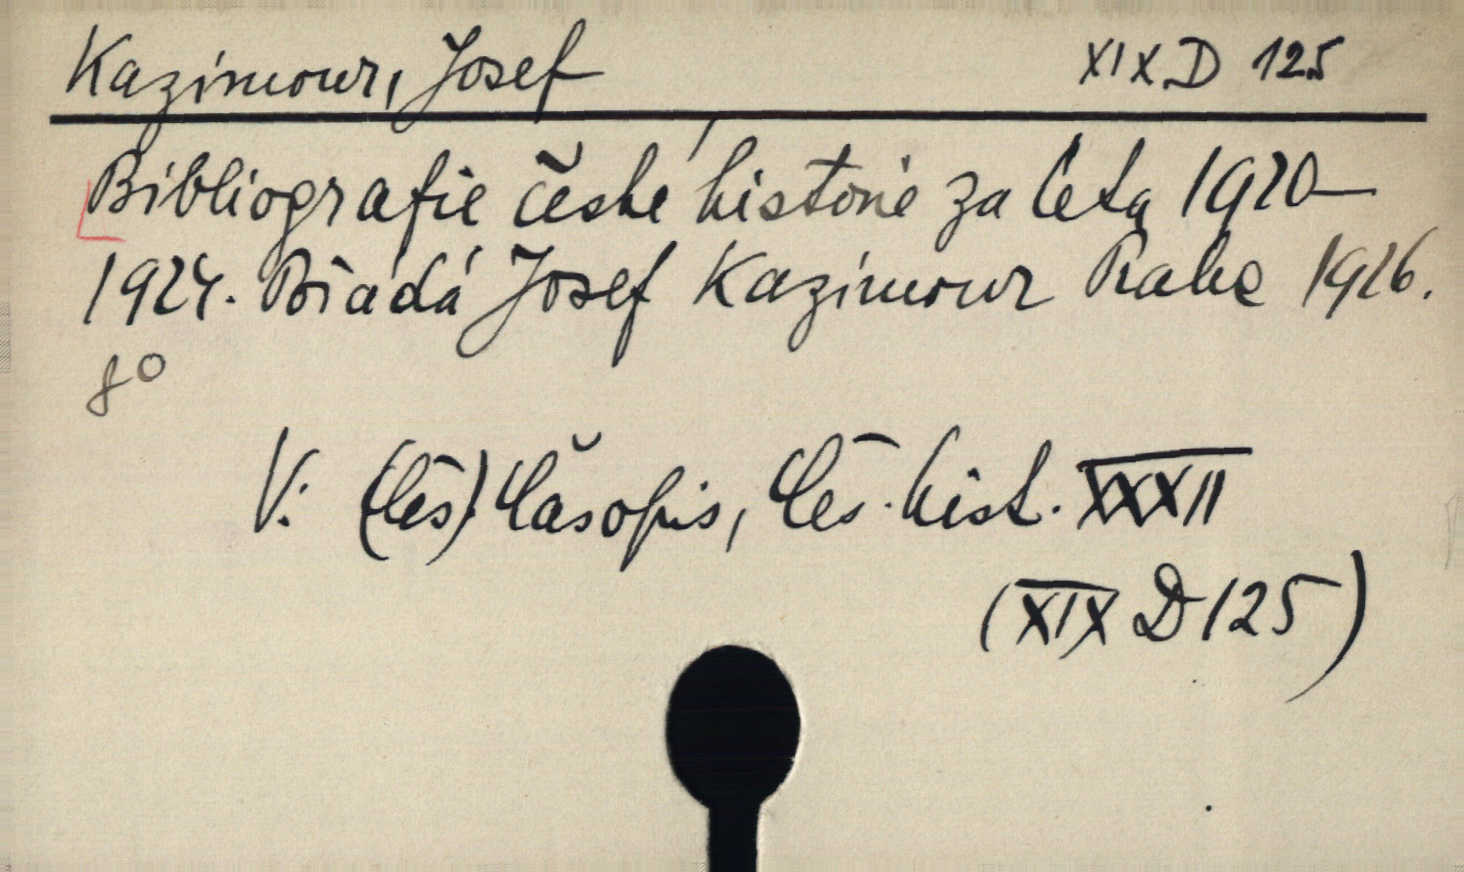 Kazimour, Josef XIX D 125
Bibliografie české historie za léta 1920–
1924. Pořádá Josef Kazimour Praha 1926.
8°
V: (Čes) Časopis, Čes. hist. XXXII
(XIX D 125)